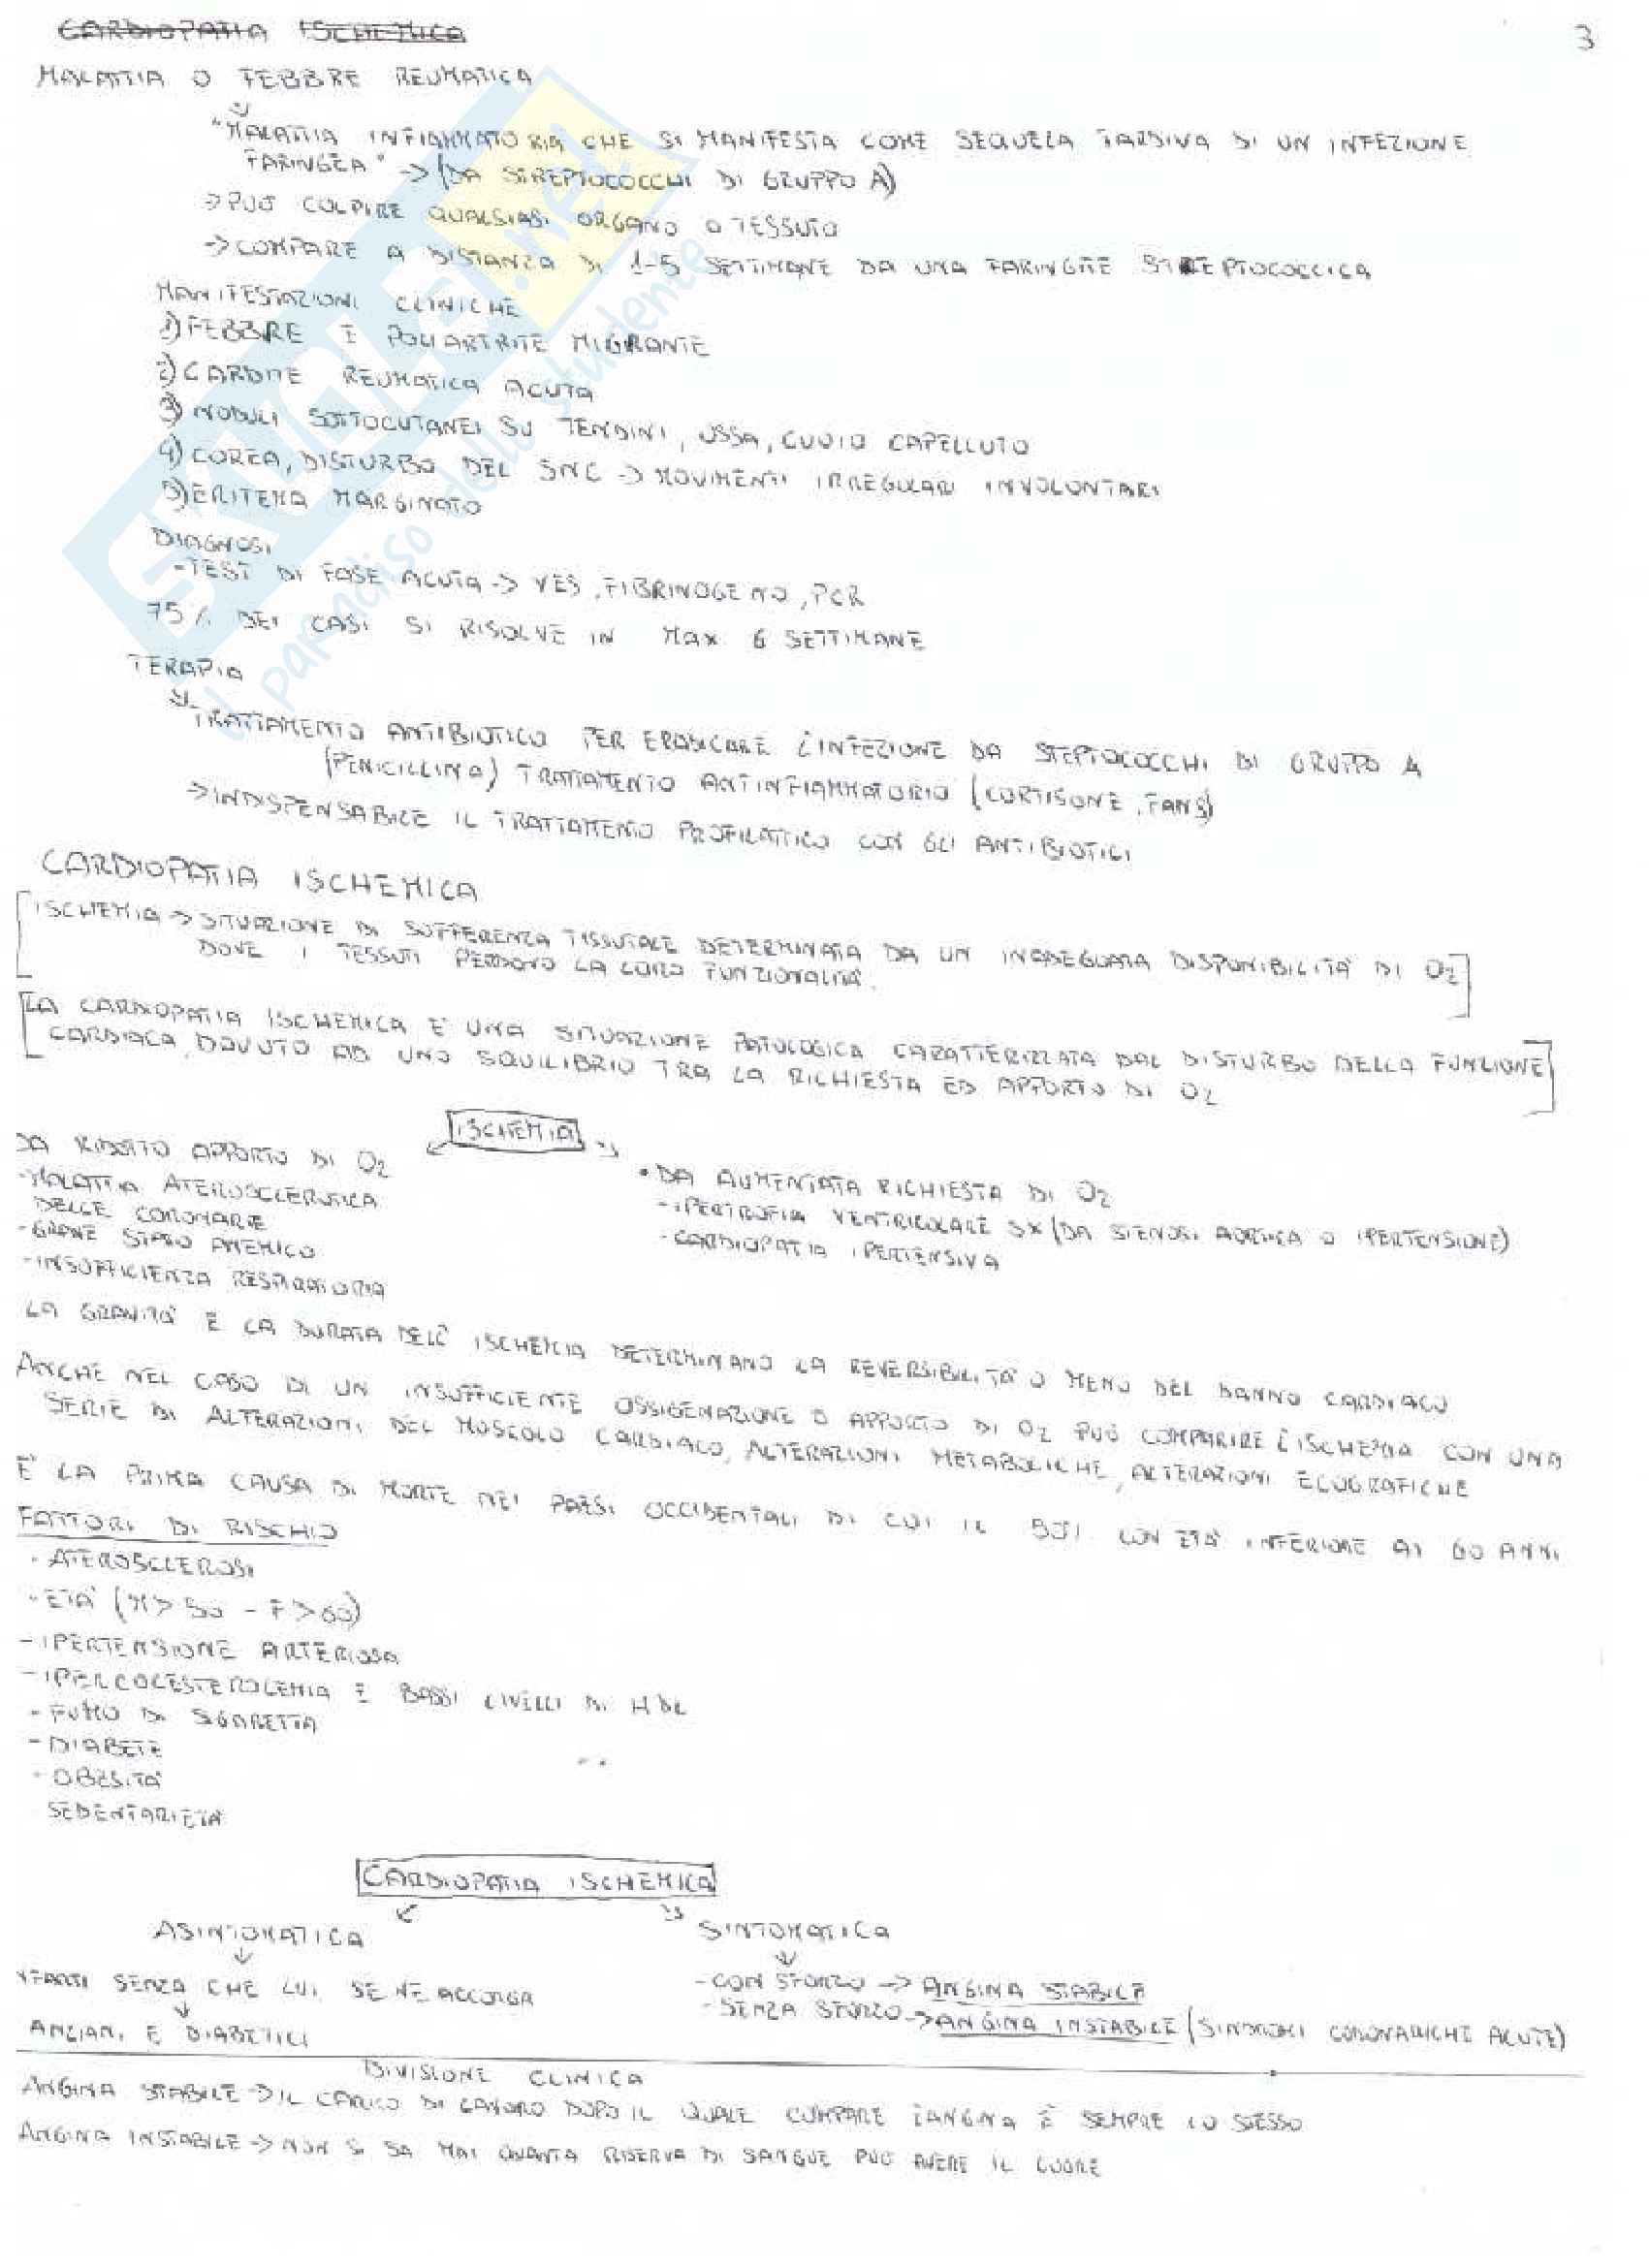 CARDIOPATIA ISCHEMICA
3
MALATTIA O FEBBRE REUMATICA
"MALATTIA INFIAMMATORIA CHE SI MANIFESTA COME SEQUELA TARDIVA DI UN INFEZIONE
FARINGEA" -> (DA STREPTOCOCCHI DI GRUPPO A)
-> PUÒ COLPIRE QUALSIASI ORGANO O TESSUTO
-> COMPARE A DISTANZA DI 1-5 SETTIMANE DA UNA FARINGITE STREPTOCOCCICA
MANIFESTAZIONI CLINICHE
1) FEBBRE E POLIARTRITE MIGRANTE
2) CARDITE REUMATICA ACUTA
3) NODULI SOTTOCUTANEI SU TENDINI, OSSA, CUOIO CAPELLUTO
4) COREA, DISTURBO DEL SNC -> MOVIMENTI IRREGOLARI INVOLONTARI
5) ERITEMA MARGINATO
DIAGNOSI
- TEST DI FASE ACUTA -> VES, FIBRINOGENO, PCR
75% DEI CASI SI RISOLVE IN MAX 6 SETTIMANE
TERAPIA
TRATTAMENTO ANTIBIOTICO PER ERADICARE L'INFEZIONE DA STEPTOCOCCHI DI GRUPPO A
(PENICILLINA) TRATTAMENTO ANTINFIAMMATORIO (CORTISONE, FANS)
-> INDISPENSABILE IL TRATTAMENTO PROFILATTICO CON GLI ANTIBIOTICI
CARDIOPATIA ISCHEMICA
ISCHEMIA -> SITUAZIONE DI SOFFERENZA TISSUTALE DETERMINATA DA UN INADEGUATA DISPONIBILITÀ DI O2
DOVE I TESSUTI PERDONO LA LORO FUNZIONALITÀ.
LA CARDIOPATIA ISCHEMICA È UNA SITUAZIONE PATOLOGICA CARATTERIZZATA DAL DISTURBO DELLA FUNZIONE
CARDIACA, DOVUTO AD UNO SQUILIBRIO TRA LA RICHIESTA ED APPORTO DI O2
ISCHEMIA
DA RIDOTTO APPORTO DI O2
- MALATTIA ATEROSCLEROTICA
DELLE CORONARIE
- GRAVE STATO ANEMICO
- INSUFFICIENZA RESPIRATORIA
• DA AUMENTATA RICHIESTA DI O2
- IPERTROFIA VENTRICOLARE SX (DA STENOSI AORTICA O IPERTENSIONE)
- CARDIOPATIA IPERTENSIVA
LA GRAVITÀ E LA DURATA DELL'ISCHEMIA DETERMINANO LA REVERSIBILITÀ O MENO DEL DANNO CARDIACO
ANCHE NEL CASO DI UN INSUFFICIENTE OSSIGENAZIONE O APPORTO DI O2 PUÒ COMPARIRE L'ISCHEMIA CON UNA
SERIE DI ALTERAZIONI DEL MUSCOLO CARDIACO, ALTERAZIONI METABOLICHE, ALTERAZIONI ECOGRAFICHE
È LA PRIMA CAUSA DI MORTE NEI PAESI OCCIDENTALI DI CUI IL CON ETÀ INFERIORE AI 60 ANNI
FATTORI DI RISCHIO
- ATEROSCLEROSI
- ETÀ (M>50 - F>60)
- IPERTENSIONE ARTERIOSA
- IPERCOLESTEROLEMIA E BASSI LIVELLI DI HDL
- FUMO DI SIGARETTA
- DIABETE
- OBESITÀ
SEDENTARIETÀ
CARDIOPATIA ISCHEMICA
ASINTOMATICA
SINTOMATICA
SENZA CHE LUI SE NE ACCORGA
- CON SFORZO -> ANGINA STABILE
- SENZA SFORZO -> ANGINA INSTABILE (SINDROMI CORONARICHE ACUTE)
ANZIANI E DIABETICI
DIVISIONE CLINICA
ANGINA STABILE -> IL CARICO DI LAVORO DOPO IL QUALE COMPARE L'ANGINA È SEMPRE LO STESSO
ANGINA INSTABILE -> NON SI SA MAI QUANTA RISERVA DI SANGUE PUÒ AVERE IL CUORE
SKUOLA.net
il paradiso dello studente